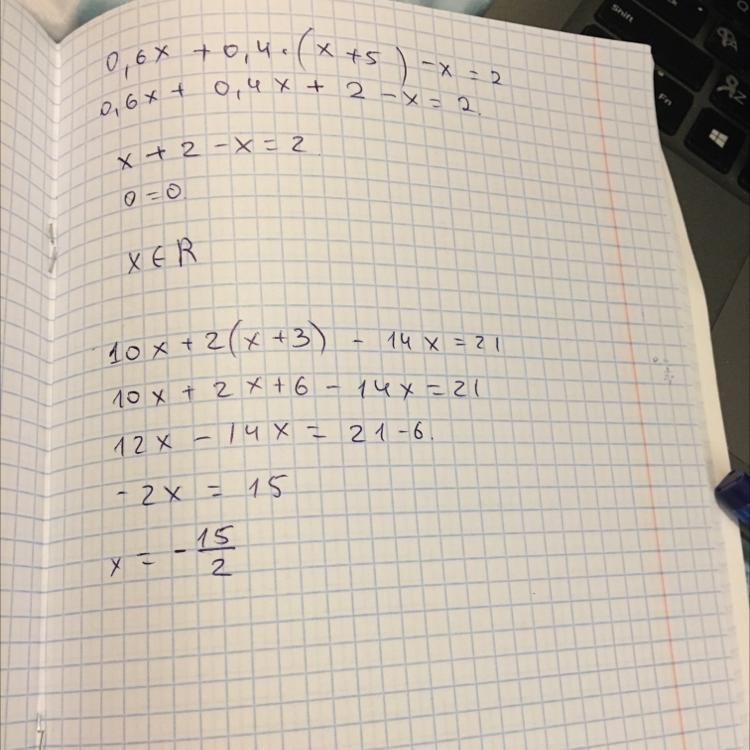 0,6x + 0,4·(x+5) -x = 2
0,6x + 0,4x + 2 - x = 2.
x + 2 - x = 2
0 = 0
x ∈ R
10x + 2(x+3) - 14x = 21
10x + 2x + 6 - 14x = 21
12x - 14x = 21 - 6.
-2x = 15
x = - 15/2
Shift
Fn